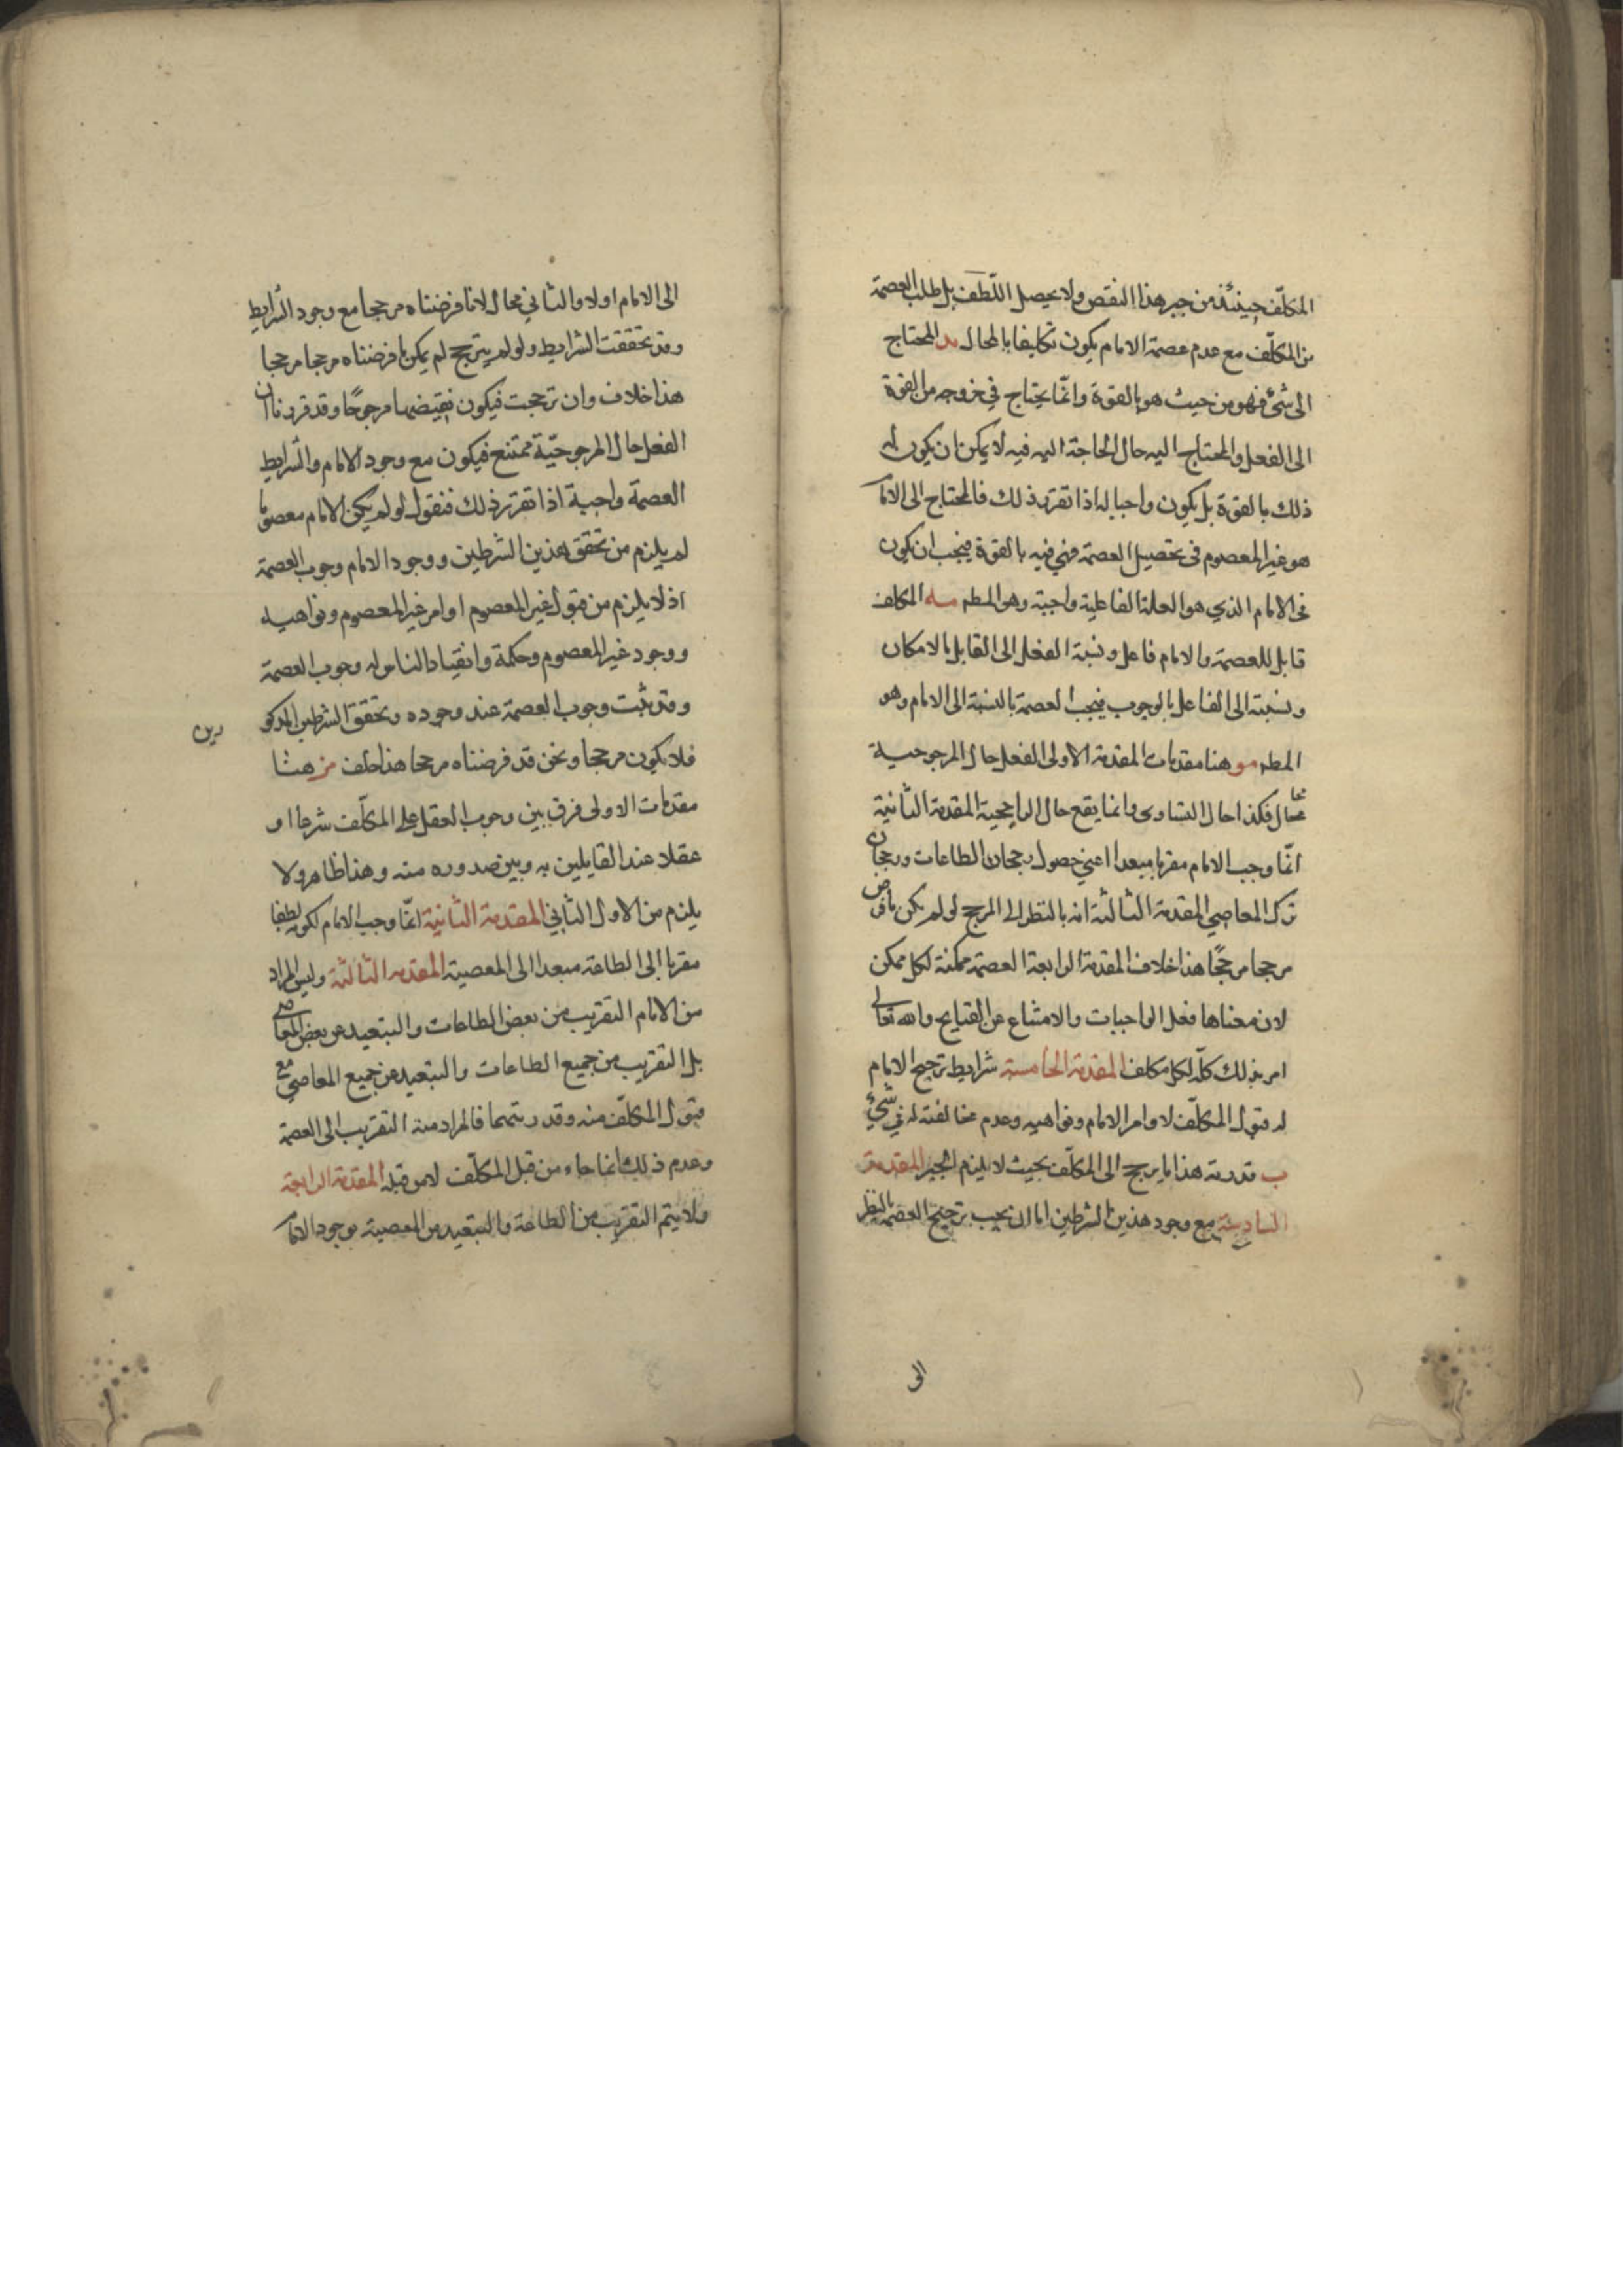 المكلّف حينئذ من جبر هذا النقص ولا يحصل اللّطف بل طلب العصمة
من المكلّف مع عدم عصمة الامام يكون تكليفا بالمحال مد المحتاج
الى شئ فهو من حيث هو بالقوة وانمّا يحتاج في خروجه من القوة
الى الفعل والمحتاج اليه حال الحاجة اليه فيه لا يمكن ان يكون له
ذلك بالقوة بل يكون واجبا له اذا تقرر ذلك فالمحتاج الى الاما
هو غير المعصوم في تحصيل العصمة فهي فيه بالقوة فيجب ان يكون
في الامام الذي هو العلة الفاعلية واجبة وهو المطم مه المكلف
قابل للعصمة والامام فاعل ونسبة الفعل الى القابل بالامكان
ونسبته الى الفاعل بالوجوب فيجب العصمة بالنسبة الى الامام وهو
المطم مو هنا مقدمات المقدمة الاولى الفعل حال المرجوحية
محال فكذا حال التساوى وانما يقع حال الراجحية المقدمة الثانية
انمّا وجب الامام مقربا مبعدا اعني حصول رجحان الطاعات ورجحان
ترك المعاصي المقدمة الثالثة انه بالنظر الى المرجح لو لم يكن ما فرض
مرجحا مرجحًا هذا خلاف المقدمة الرابعة العصمة ممكنة لكل ممكن
لان معناها فعل الواجبات والامتناع عن القبايح والله تعالى
امر بذلك كلّه لكل مكلف المقدمة الخامسة شرايط ترجيح الامام
له قبول المكلّف لاوامر الامام ونواهيه وعدم مخالفته له في شئ
ب قدرته هذا ما يرجح الى المكلّف بحيث لا يلزم الجبر المقدمة
السادسة مع وجود هذين الشرطين اما ان يجب ترجيح العصمة بالنظر
الى
الى الامام اولا والثاني محال لانا فرضناه مرجحا مع وجود الشرايط
وقد تحققت الشرايط ولو لم يترجح لم يكن ما فرضناه مرجحا مرجحا
هذا خلاف وان ترجحت فيكون نقيضها مرجوحًا وقد قررنا ان
الفعل حال المرجوحيّة ممتنع فيكون مع وجود الامام والشرايط
العصمة واجبة اذا تقرر ذلك فنقول لو لم يكن الامام معصوما
لم يلزم من تحقق هذين الشرطين ووجود الامام وجوب العصمة
اذ لا يلزم من قبول غير المعصوم اوامر غير المعصوم ونواهيه
ووجود غير المعصوم وحكمة وانقياد الناس له وجوب العصمة
وقد ثبت وجوب العصمة عند وجوده وتحقق الشرطين المذكو
رين
فلا يكون مرجحا ونحن قد فرضناه مرجحا هذا خلف مز هنا
مقدمات الاولى فرق بين وجوب الفعل على المكلّف شرعا او
عقلا عند القايلين به وبين صدوره منه وهذا ظاهر ولا
يلزم من الاول الثاني المقدمة الثانية انمّا وجب الامام لكونه لطفا
مقربا الى الطاعة مبعدا الى المعصية المقدمه الثالثة وليس المراد
من الامام التقريب من بعض الطاعات والتبعيد عن بعض المعاصي
بل التقريب من جميع الطاعات والتبعيد عن جميع المعاصي مع
قبول المكلّف منه وقدرتهما فالمراد منه التقريب الى العصمة
وعدم ذلك انما جاء من قبل المكلّف لا من قبله المقدمة الرابعة
ولا يتم التقريب من الطاعة والتبعيد من المعصية بوجود الاما